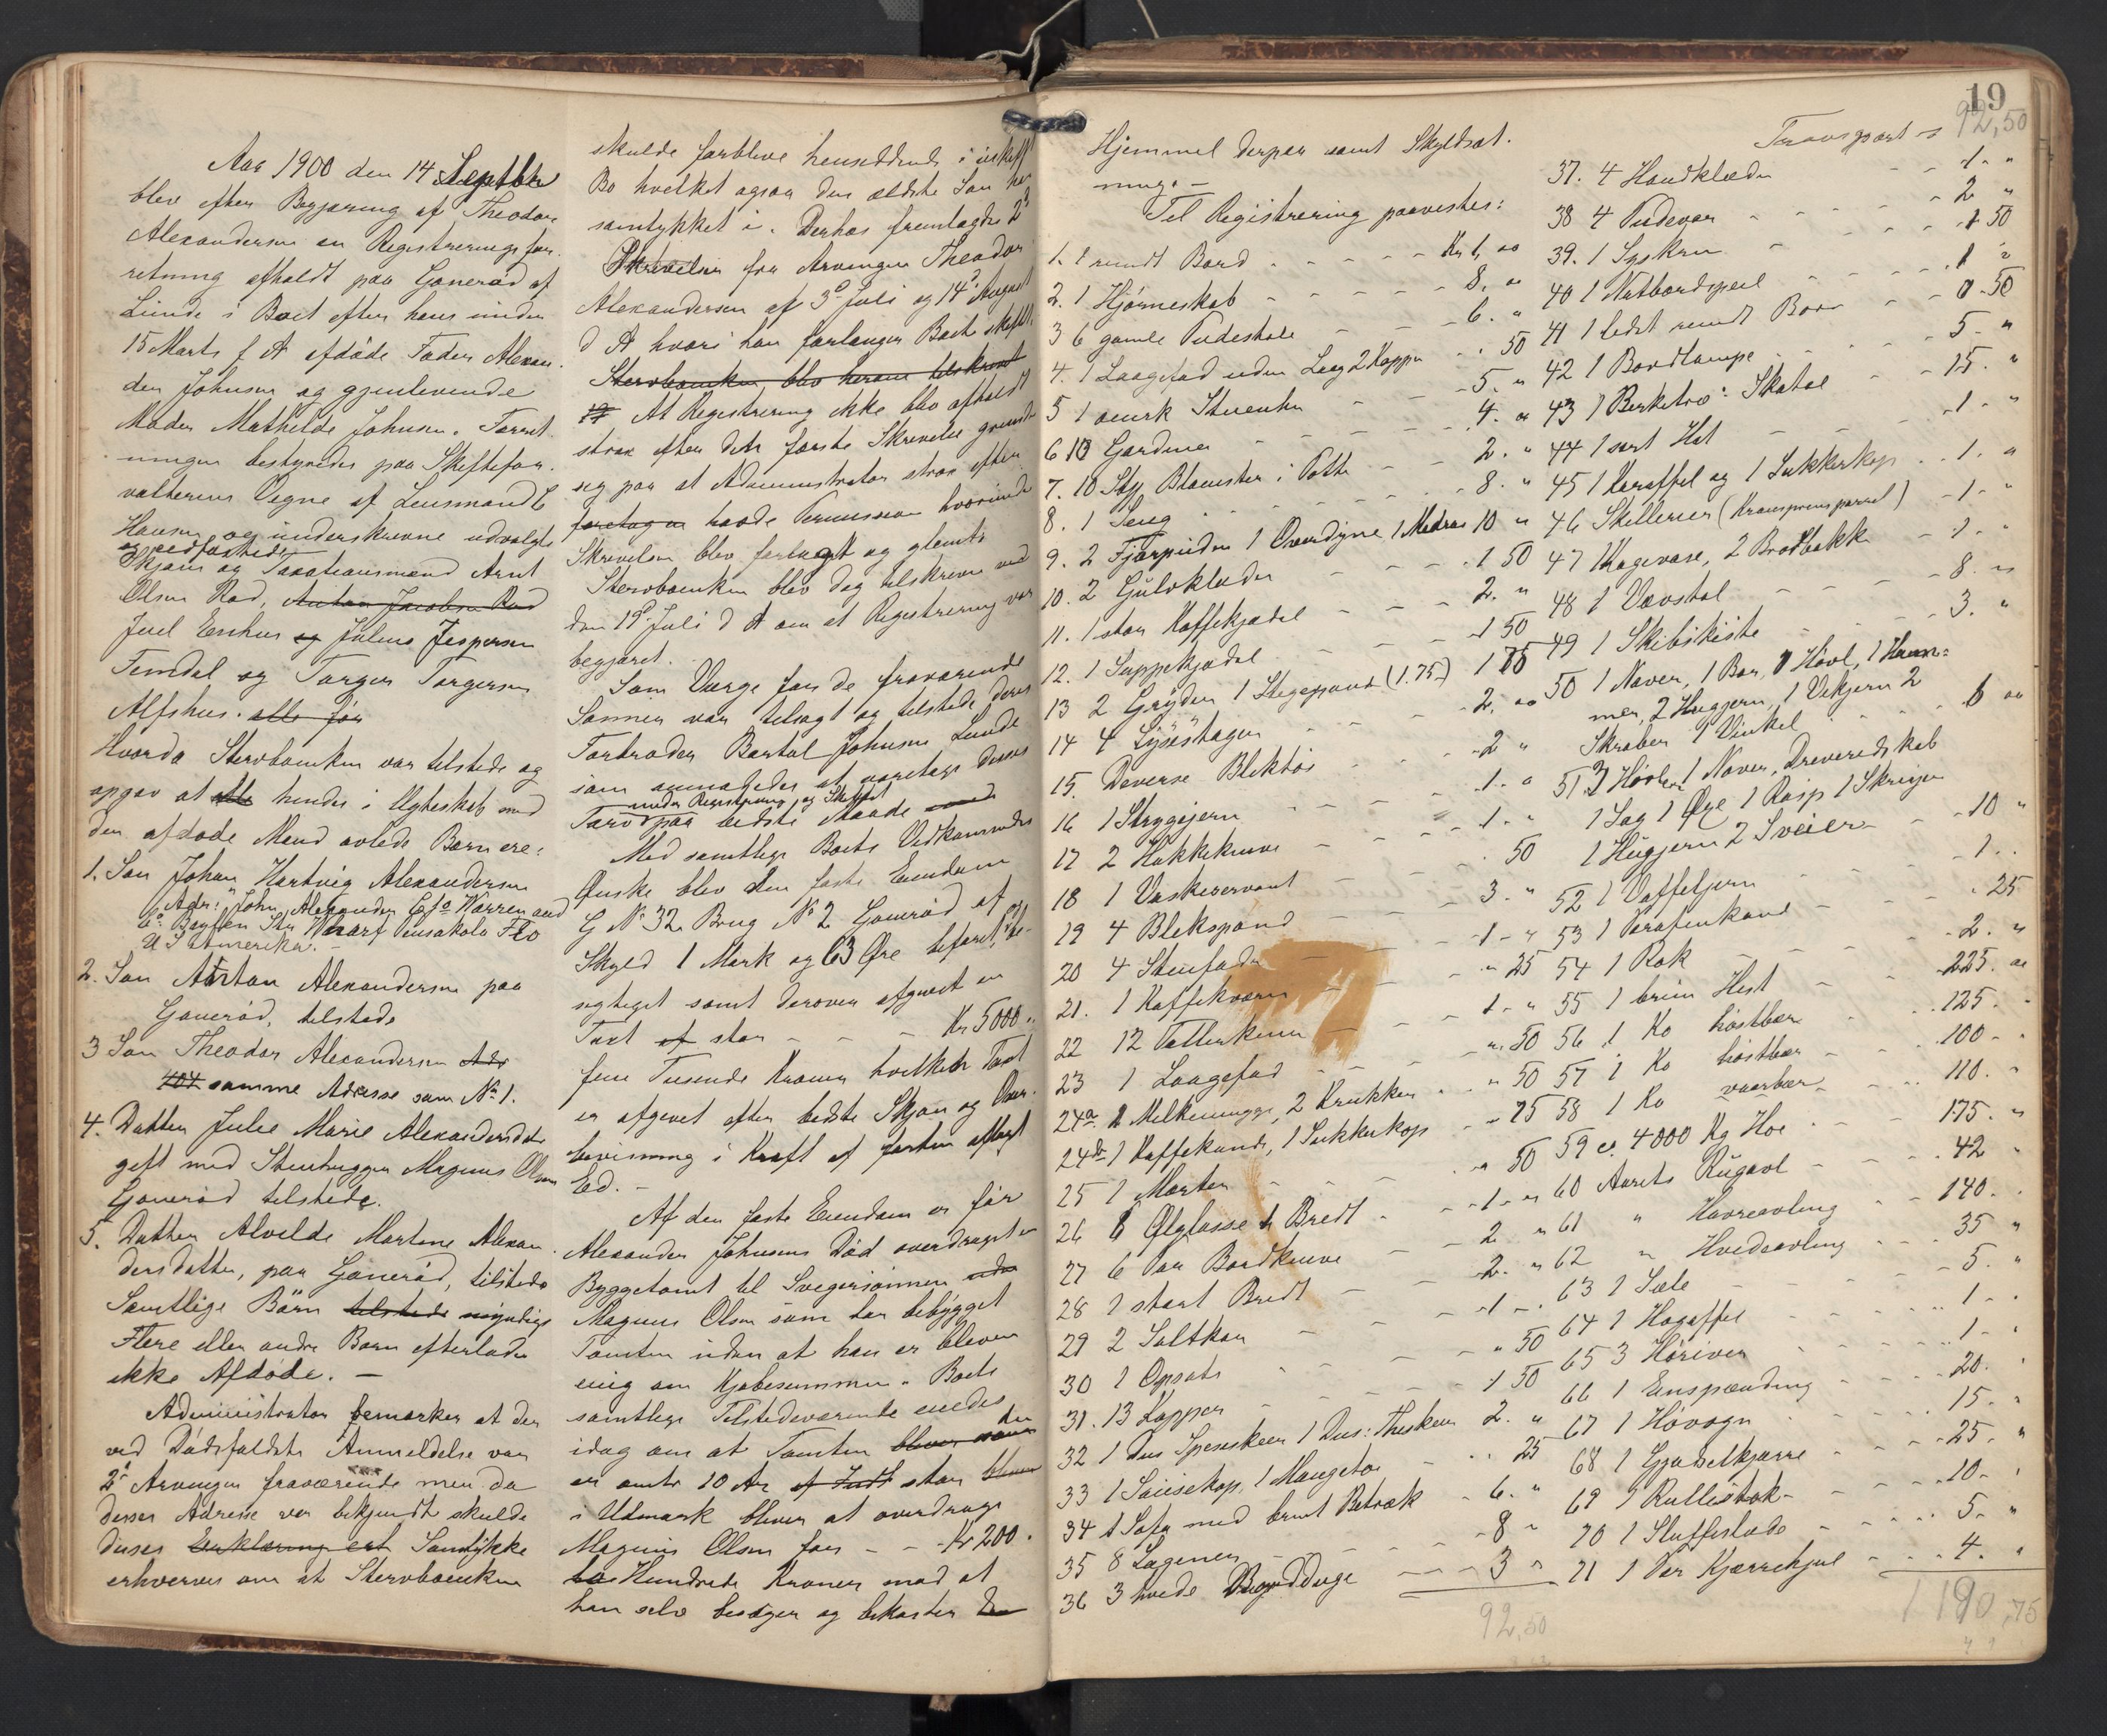 Aar 1900 den 14 Septbr
blev efter Begjæring af Theodor
Alexandersen en Registreringsfor-
retning afholdt paa Gonerød af
Lunde i Boet efter hans under
15 Marts f A afdøde Fader Alexan-
der Johnsen og gjenlevende
Moder Mathilde Johnsen. Forret-
ningen bestyredes paa Skiftefor-
valterens Vegne af Lensmand E
Hansen og underskrevne udvalgte
og edfæstede
Skjøns og Taxationsmænd Arnt
Olsen Rød, Anton Jacobsen Rød
Juel Enehus og Julius Jespersen
Temdal og Torger Torgersen
Alfshus. alle før
Hvorda Stervboenken var tilstede og
opgav at alle hendes i Ægteskab med
den afdøde Mand avlede Børn ere:
1. Søn Johan Hartvig Alexandersen
Adr: John Alexander C/o Warren and
Co. Wharf Pensakola Flo
U S Amerika. –
2. Søn Anton Alexandersen paa
Gonerød, tilstede
3 Søn Theodor Alexandersen Adr
404 samme Adresse som No 1.
4. Datter Julie Marie Alexandersdatter
gift med Stenhugger Magnus Olsen
Gonerød tilstede.
5. Datter Alvilde Martine Alexan-
dersdatter, paa Gonerød, tilstede
Samtlige Børn tilstede myndige
Flere eller andre Børn efterlader
ikke Afdøde. –
Administrator bemærker at der
ved Dødsfaldets Anmeldelse var
2de Arvinger fraværende men da
disses Adresse var bekjendt skulde
disses Erklæring est Samtykke
erhverves om at Stervboenken
skulde forblive hensiddende i uskift
Bo hvilket ogsaa den ældste Søn har
samtykket i. Derhos fremlagdes 2de
Skrivelser fra Arvingen Theodor
Alexandersen af 3de Juli og 14de August
d A hvori han forlanger Boets skiftet.
Stervboenken blev herom tilskrevet
At Registrering ikke blev afholdt
strax efter dets første Skrivelse grunder
sig paa at Administrator strax efter
foretagen havde Permission hvorunder
Skrivelsen blev forlagt og glemt.
Stervboenken blev dog tilskreven ved
den 19de Juli d A om at Registrering var
begjæret.
Som Værge for de fraværende
Sønner var tilsagt og tilstede deres
Farbroder Bertol Johnsen Lunde
som anmodedes at varetage disses
under Registrering og Skiftet
Tarv paa bedste Maade
Med samtlige Boets Vedkommendes
Ønske blev den faste Eiendom
G No 32 Brug No 2 Gonerød af
Skyld 1 Mark og 63 Øre befaret, og be-
sigtiget samt derover afgivet en
Taxt af stor – – Kr 5000..
fem Tusende Kroner hvilken Taxt
er afgivet efter bedste Skjøn og Over-
bevisning i Kraft af forhen aflagt
Ed. –
Af den faste Eiendom er før
Alexander Johnsens Død overdraget en
Byggetomt til Svigersønnen
Magnus Olsen som har bebygget
Tomten uden at han er bleven
enig om Kjøbesummen. Boets
samtlige Tilstedeværende enedes
idag om at Tomten bliver der
er omtr 10 Ar af Indt stor
i Udmark bliver at overdrage
Magnus Olsen for – – Kr 200.
to Hundrede Kroner mod at
han selv besørger og bekoster
19
Hjemmel derpaa samt Skyldsæt-
ning. –
Til Registrering paavistes:
1. 1 rundt Bord - - - Kr 1, oo
2. 1 Hjørneskab - - - 8, oo
3 6 gamle Pudestole - - - 6. "
4. 1 Laagefad uden Laag 2 Kopper - " 50
5 1 amrk Stueuhr - 5. "
6 10 Gardiner - - 4. "
7. 10 Stk Blomster i Potte - - 2. "
8. 1 Seng - - - 8. "
9. 2 Fjærpuder 1 Overdyne 1 Madras 10 "
10. 2 Gulvklæder - - - 1 50
11. 1 stor Kaffekjædel - - - 2. "
12. 1 Suppekjædel - - - 1 50
13 2 Gryder 1 Stegepande (1.75) 1 75
14 4 Lysestager - - - 2. oo
15. Deverse Bliktøi - - - 2 "
16 1 Strygejern - - - 1. "
17 2 Hakkeknive - - - 1. "
18 1 Vaskeservant - - - 50
19 4 Blikspand - - - 3. "
20 4 Stenfade - - - 1 - "
21. 1 Kaffekværn - - - " 25
22 12 Tallerkener - - - 1. "
23 1 Laagefad - - - " 50
24a. 2 Melkemugge, 2 Krukker - - " 50
24b. 1 Kaffekande, 1 Sukkerkop - " 75
25 1 Morter - - - " 50
26 6 Ølglasse & Bredt - - 1 - "
27 6 Par Bordknive - - 2 "
28 1 stort Bredt - - 2. "
29 2 Saltkar - - - 1 -.
30 1 Opsats - - - " 50
31. 13 Kopper - - - 1 50
32 1 Dus Speseskeer 1 Dus: Theskeer 2. "
33 1 Sausekop, 1 Mangetøi - - - 25
34 1 Sofa med brunt Betræk - 6. "
35 8 Lagener - - - 8 "
36 3 hvede Bordduge - - - 3 "
92,50
Transport 92,50
37. 4 Haandklæder - 1 - "
38 4 Pudevar - - - 2 "
39. 1 Syskrin - - - 1 50
40 1 Natbordspeil - - - 1 "
41 1 lidet rundt Bord - - 0.50
42 1 Bordlampe - - - 5. "
43 1 Birketræ: Skatol - - 15. "
44 1 sort Hat - - - 1. "
45 1 Karaffel og 1 Sukkerkop - - 1. "
46 Skillerier - 1 - "
47 1 Kagevase, 2 Brødbakke - 1 -
48 1 Vævstol - - - 8. "
49 1 Skibskiste - - - 3. "
50 1 Naver, 1 Bor, 1 Høvl, 1 Ham-
mer, 2 Hugjern, 1 Vekjern 2
Skraber 1 Vinkel - - 6 oo
51 3 Høvler 1 Naver, Dreveredskab
1 Sag 1 Øxe 1 Rasp 1 Skruejern
1 Hugjern 2 Sveier - - 10 "
52 1 Vaffeljern - - - 1..
53 1 Parafinkande - - - . 25
54 1 Rok - - - 2. "
55 1 brun Hest - - 225. oo
56 1 Ko høstbær - - 125. "
57 1 Ko høstbær - - 100 - "
58 1 Ko vaarbær - - 110. "
59 c. 4000 Kg Hø - - 175. "
60 Aarets Rugavl - - - 42 "
61 " Havreavling - - 140. "
62 " Hvedeavling - - - 35 "
63 1 Sæle - - - 5. "
64 1 Høgaffel - - - 1 - "
65 3 Høriver - - - 1 - "
66 1 Enspænding - - - 20. "
67 1 Høvogn - - - 15. "
68 1 Gjødselkjærre - - - 25. "
69 1 Rullestok - - - 10 - "
70 1 Sluffeslæde - - - 5. "
71 1 Par Kjærrehjul - - - 4. "
1190,75